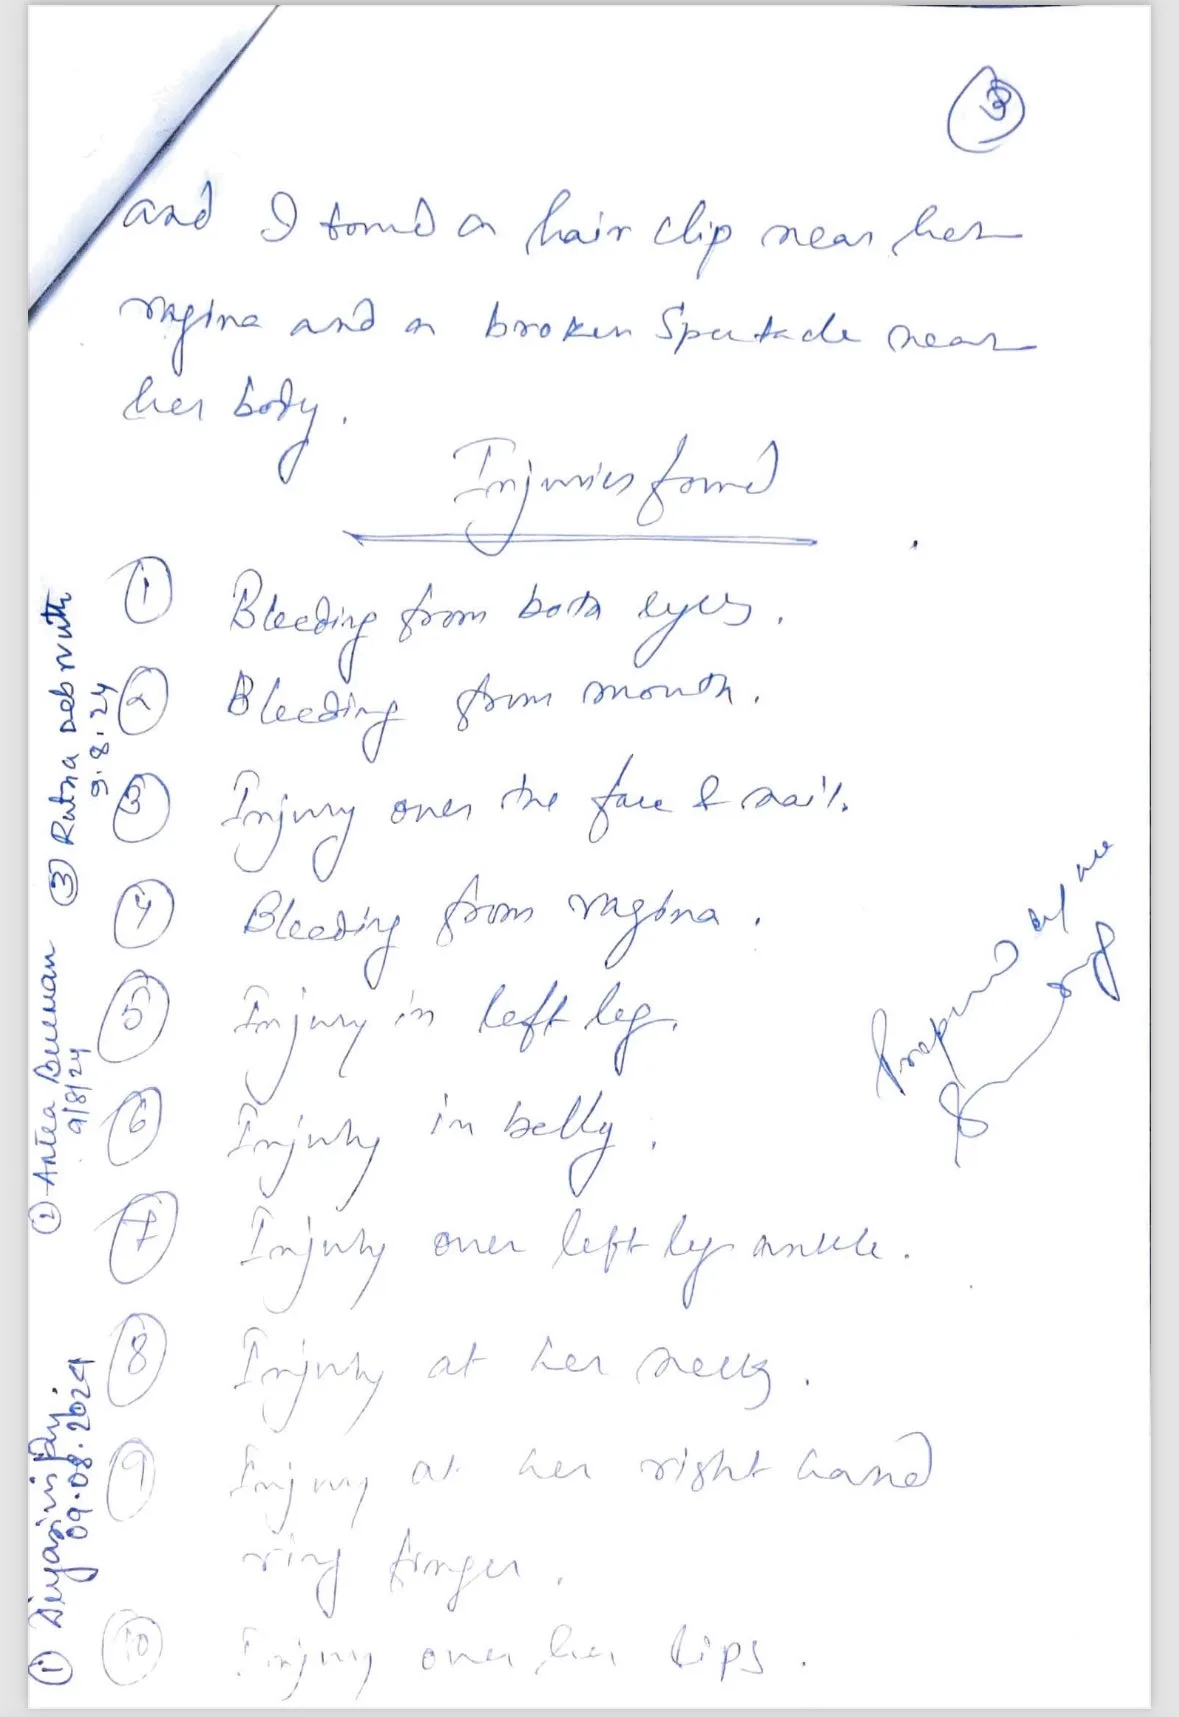 3
and I found a hair clip near her
vagina and a broken Spectacle near
her body.
Injuries found
1 Bleeding from both eyes.
2 Bleeding from mouth.
3 Injury over the face & nail.
4 Bleeding from vagina.
5 Injury in left leg.
6 Injury in belly.
7 Injury over left leg ankle.
8 Injury at her neck.
9 Injury at her right hand
ring finger.
10 Injury over her lips.
Prepared by me
1
09.08.2024
2
9/8/24
3 Ratna
9.8.24